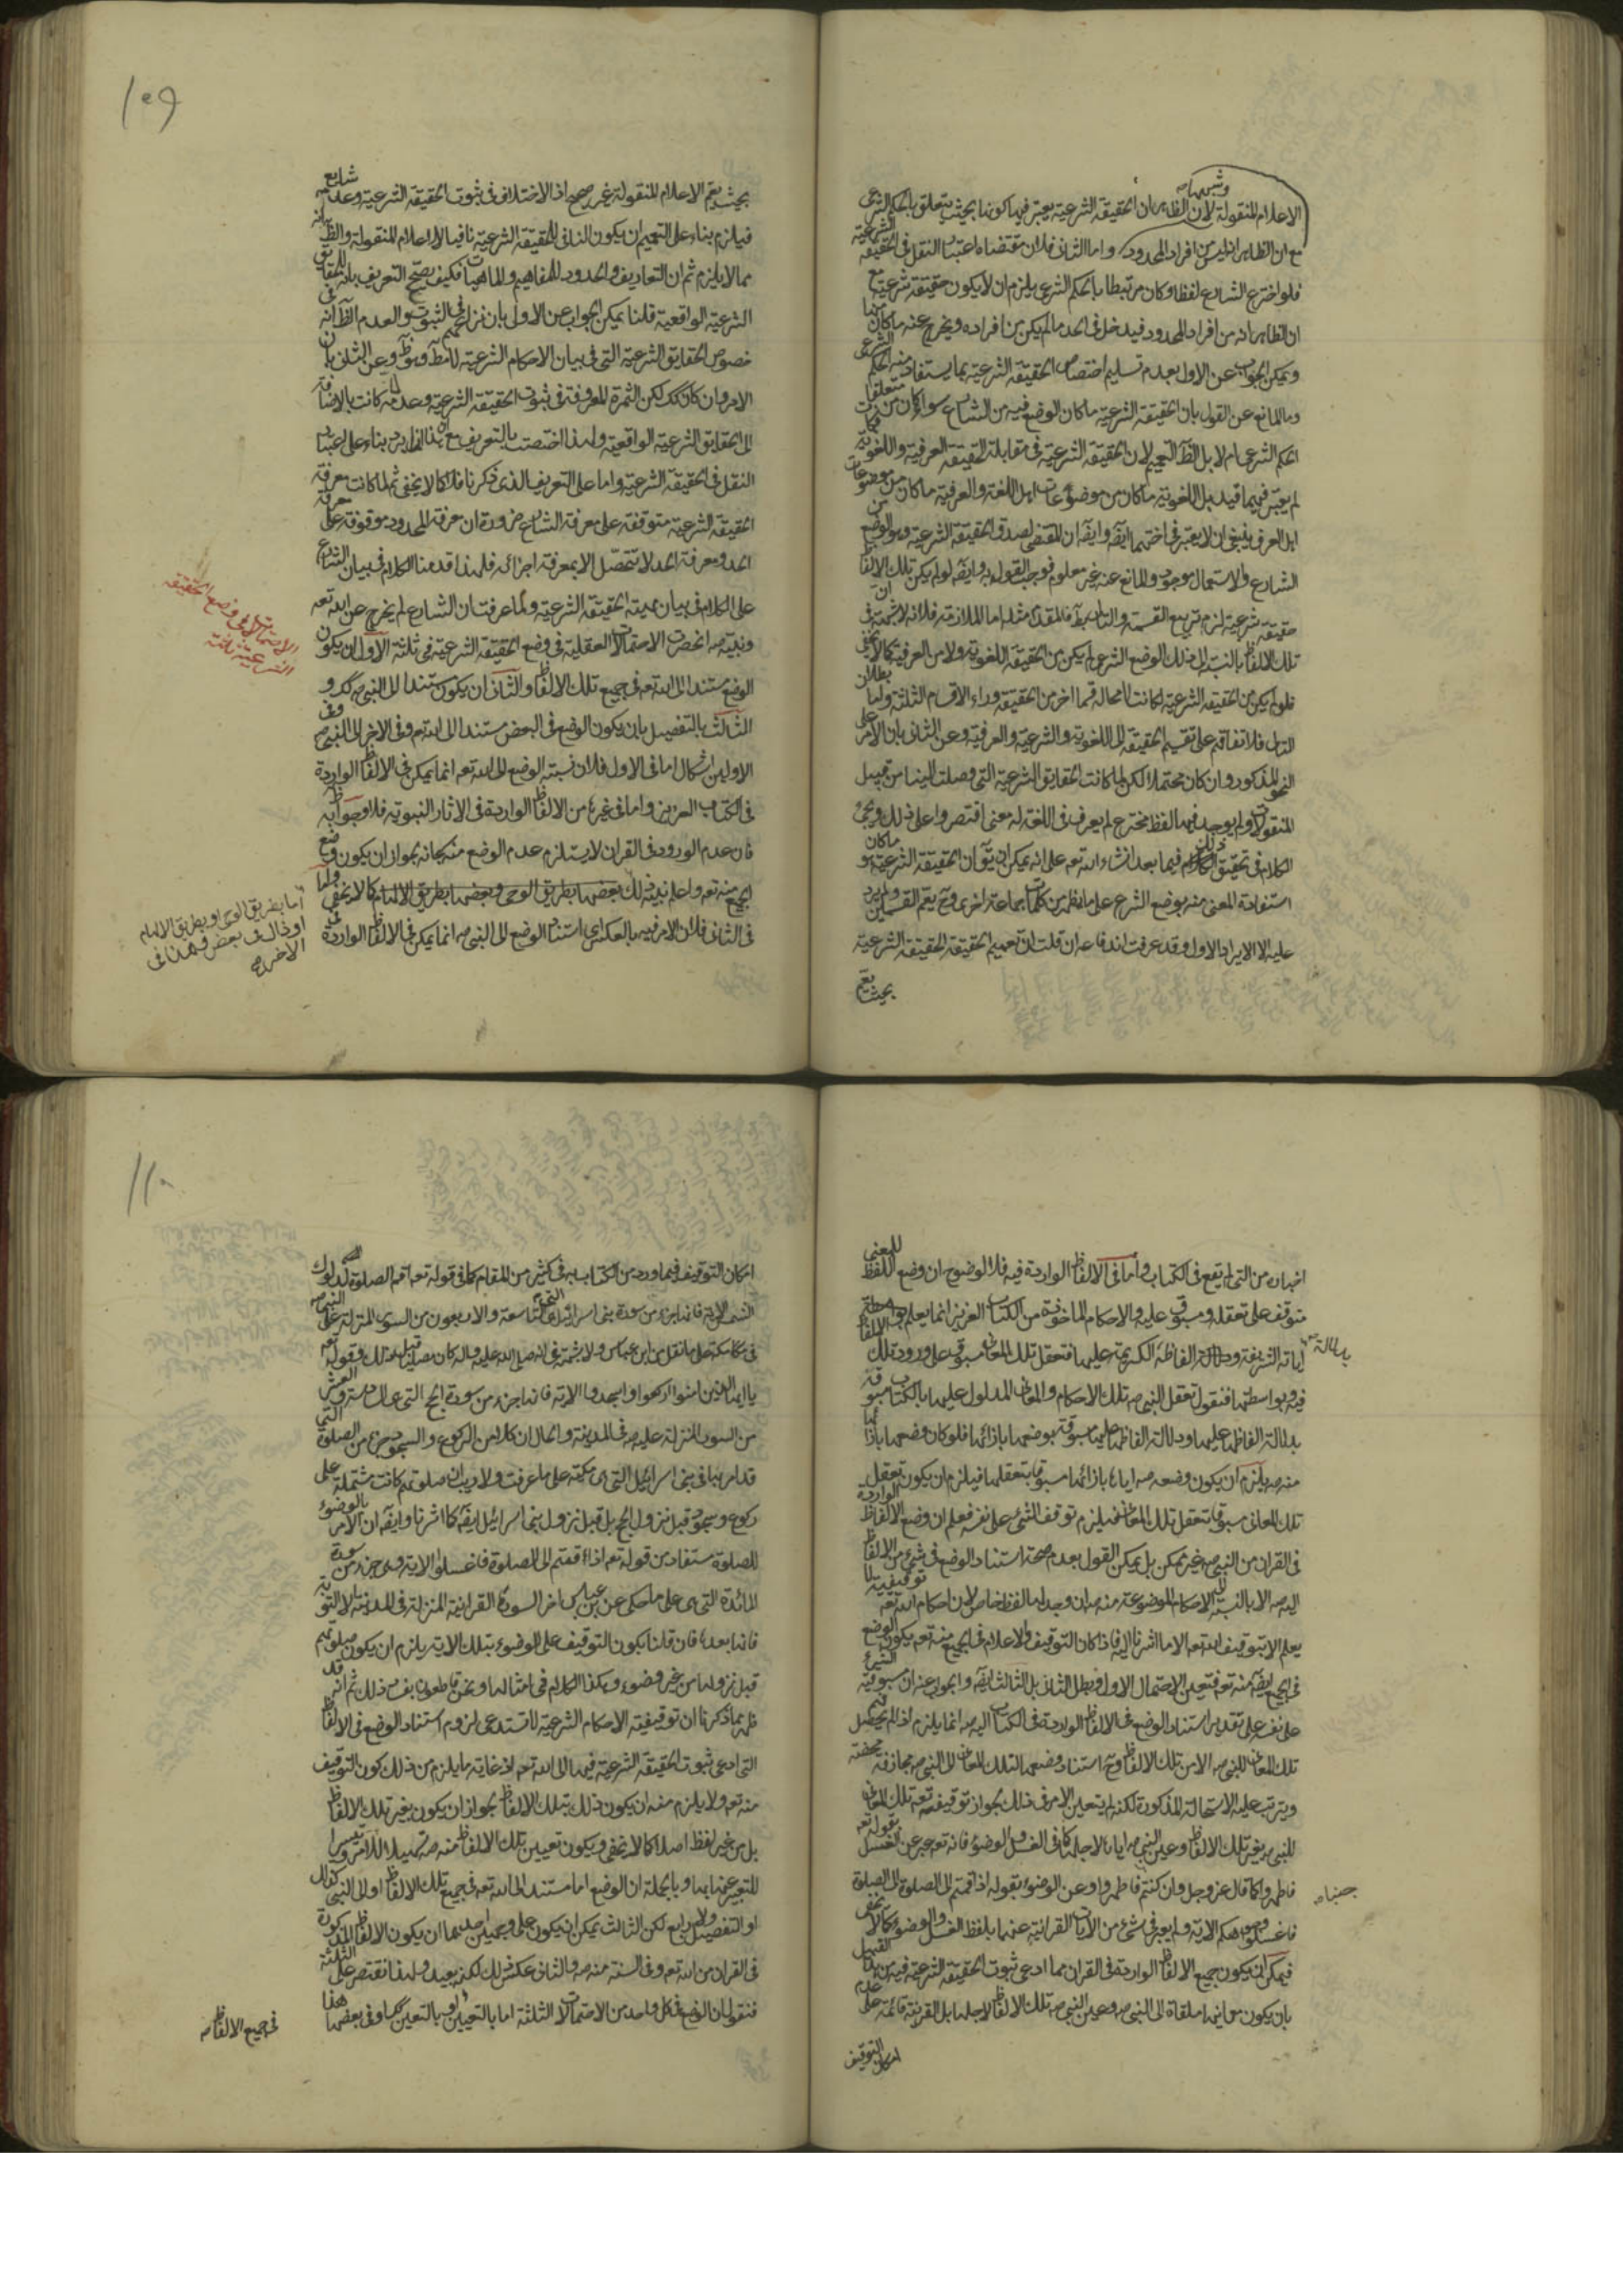 الاعلام المنقولة لان الظاهر ان الحقيقة الشرعية يعتبر فيها كونها بحيث يتعلق بالحكم الشرعى
مع ان الظاهر انه ليس من افراد المحدود واما الثانى فلان مقتضاه اعتبار النقل فى الحقيقة الشرعية
فلو اخترع الشارع لفظا وكان مرتبطا بالحكم الشرعى يلزم ان لا يكون حقيقة شرعية مع
ان الظاهر انه من افراد المحدود فيدخل فى الحد ما لم يكن من افراده ويخرج عنه ما كان منها
ويمكن الجواب عن الاول بعدم تسليم اختصاص الحقيقة الشرعية بما يستفاد منه الحكم الشرعى
وما المانع عن القول بان الحقيقة الشرعية ما كان الوضع فيه من الشارع سواء كان من متعلقات
الحكم الشرعى ام لا بل الظ التعميم لان الحقيقة الشرعية فى مقابلة الحقيقة العرفية واللغوية فكما
لم يعتبر فيهما قيد بل اللغوية ما كان من موضوعات اهل اللغة والعرفية ما كان من موضوعات
اهل العرف ينبغى ان لا يعتبر فى اختهما ايضا وايضا ان المقتضى لصدق الحقيقة الشرعية وهو الوضع من
الشارع والاستعمال موجود والمانع عنه غير معلوم فوجب القول به وايضا لو لم يكن تلك الالفاظ
حقيقة شرعية لزم تربيع القسمة والتالى بط فالمقدم مثله اما الملازمة فلانه لا شبهة فى ان
تلك الالفاظ بالنسبة الى ذلك الوضع الشرعى لم يكن من الحقيقة اللغوية ولا من العرفية كما لا يخفى
فلو لم يكن من الحقيقة الشرعية لكانت لا محالة قسما اخر من الحقيقة وراء الاقسام الثلثة واما بطلان
التالى فلاتفاقهم على تقسيم الحقيقة الى اللغوية والشرعية والعرفية وعن الثانى بان الامر على
النحو المذكور وان كان محتملا لكن لما كانت الحقايق الشرعية التى وصلت الينا من قبيل
المنقولات ولم يوجد فيها لفظ مخترع لم يعرف فى اللغة له معنى اقتصروا على ذلك ويجئ
الكلام فى تحقيق ذلك فيما بعد انشاء الله تعه على انه يمكن ان يق ان الحقيقة الشرعية هو ما كان
استفادة المعنى منه بوضع الشرع على ما يظهر من كلمات جماعة اخرى وح يعم القسمين ولم يرد
عليه الا الايراد الاول وقد عرفت اندفاعه ان قلت ان تعميم الحقيقة الحقيقة الشرعية
بحيث يعم
١٠٩
بحيث يعم الاعلام المنقولة غير صحيح اذ الاختلاف فى ثبوت الحقيقة الشرعية وعدمه شايع
فيلزم بناء على التعميم ان يكون النافى للحقيقة الشرعية نافيا للاعلام المنقولة والظ انه
مما لا يلزم ثم ان التعاريف والحدود للمفاهيم والماهيات فكيف يصح التعريف بانه للحقايق
الشرعية الواقعية قلنا يمكن الجواب عن الاول بان نزاعهم فى الثبوت والعدم الظ انه فى
خصوص الحقايق الشرعية التى فى بيان الاحكام الشرعية وعن الثانى بان
الامر وان كان كك لكن الثمرة المعروفة فى ثبوت الحقيقة الشرعية وعدمه لما كانت بالاضافة
الى الحقايق الشرعية الواقعية ولهذا اختصت بالتعريف مع ان هذا انما يرد بناء على اعتبار
النقل فى الحقيقة الشرعية واما على التعريف الذى ذكرنا فلا كما لا يخفى ثم لما كانت معرفة
الحقيقة الشرعية متوقفة على معرفة الشارع ضرورة ان معرفة المحدود موقوفة على معرفة
الحد ومعرفة الحد لا تتحصل الا بمعرفة اجزائه فلهذا قدمنا الكلام فى بيان الشارع
على الكلام فى بيان مهية الحقيقة الشرعية ولما عرفت ان الشارع لم يخرج عن الله تعه
ونبيه صه انحصرت الاحتمالات العقلية فى وضع الحقيقة الشرعية فى ثلثة الاول ان يكون
الوضع مستندا الى الله تعه فى جميع تلك الالفاظ والثانى ان يكون مستندا الى النبى صه كك و
الثالث بالتفصيل بان يكون الوضع فى البعض مستندا الى الله تعه وفى الاخر الى النبى صه وفى
الاولين اشكال اما فى الاول فلان نسبة الوضع الى الله تعه انما يمكن فى الالفاظ الواردة
فى الكتاب العزيز واما فى غيرها من الالفاظ الواردة فى الاثار النبوية فلا وجوابه
فان عدم الورود فى القران لا يستلزم عدم الوضع منه سبحانه لجواز ان يكون وضع
الجميع منه تعه واعلم نبيه ذلك بعضها بطريق الوحى وبعضها بطريق الالهام كما لا يخفى واما
فى الثانى فلان الامر فيه بالعكس اى استناد الوضع الى النبى صه انما يمكن فى الالفاظ الواردة
الاحتمالات فى وضع الحقيقة
الشرعية ثلثة
اما بطريق الوحى او بطريق الالهام
او بحال فى بعض وهذا فى
الاخر صح
اخباره من التى لم يقع فى الكتاب واما فى الالفاظ الواردة فيه فلا لوضوح ان وضع اللفظ للمعنى
متوقف على تعقله ومسبوق عليه والاحكام الماخوذة من الكتاب العزيز انما يعلم بواسطة
اياته الشريفة ودلالة الفاظه الكريمة عليها فتعقل تلك المعانى مسبوق على ورود تلك الالفاظ
فيه وبواسطتها فنقول تعقل النبى صه تلك الاحكام والمعانى المدلول عليها بالكتاب مسبوقة
بدلالة الفاظها عليها ودلالة الفاظها عليها مسبوقة بوضعها بازائها فلو كان وضعها بازائها
منه صه يلزم ان يكون وضعه صه اياها بازائها مسبوقا بتعقلها فيلزم ان يكون تعقل
تلك المعانى مسبوقا بتعقل تلك المعانى فيلزم توقف الشئ على نفسه فعلم ان وضع الالفاظ الواردة
فى القران من النبى صه غير ممكن بل يمكن القول بعدم صحة استناد الوضع فى شئ من الالفاظ
اليه صه الا بالنسبة الى الاحكام الموضوعة منه صه ان وجد لها لفظ خاص لان احكام الله تعه توقيفية لا
يعلم الا بتوقيف الله تعه الا ما اشرنا اليه فاذا كان التوقيف والاعلام فى الجميع منه تعه يكون الوضع
فى الجميع ايضا منه تعه فتعين الاحتمال الاول فبطل الثانى بل الثالث ايضا والجواب عنه ان مسبوقية الشئ
على نفسه على تقدير استناد الوضع فى الالفاظ الواردة فى الكتاب اليه صه انما يلزم اذا لم يحصل فهم
تلك المعانى للنبى صه الا من تلك الالفاظ وح استناد وضعها لتلك المعانى الى النبى صه مجازفة محضة
ويترتب عليه الاستحالة المذكورة لكنه لم يتعين الامر فى ذلك لجواز توقيفه تعه تلك المعانى
للنبى صه بغير تلك الالفاظ وعين النبى صه اياها لاجلها كما فى الغسل والوضوء فانه تعه عبر عن الغسل بقوله تعه
فاطهروا كما قال عز وجل وان كنتم جنبا فاطهروا وعن الوضوء بقوله اذا قمتم الى الصلوة
فاغسلوا وجوهكم الاية ولم يعبر فى شئ من الايات القرانية عنهما بلفظ الغسل والوضوء كما لا يخفى
فيمكن ان يكون جميع الالفاظ الواردة فى القران مما ادعى ثبوت الحقيقة الشرعية فيه من هذا القبيل
بان يكون معانيها ملقاة الى النبى صه وعين النبى صه تلك الالفاظ لاجلها بل القرينة قائمة على عدم
امكان التوقيف
جنبا صه
١١٠
امكان التوقيف فيما ورد من الكتاب به فى كثير من المقام كما فى قوله تعه اقم الصلوة لدلوك
الشمس الاية فانها جزء من سورة بنى اسرائيل التى هى التاسعة والاربعون من السور المنزلة على النبى صه
فى مكة على ما نقل عن ابن عباس ولا شبهة فى انه صلى الله عليه واله كان مصليا قبل ذلك وقوله تعه
يا ايها الذين امنوا اركعوا واسجدوا الاية فانها جزء من سورة الحج التى هى
من السور المنزلة عليه صه فى المدينة والحال ان كلا من الركوع والسجود جزء من الصلوة التى
قد امر بها فى بنى اسرائيل التى هى مكية على ما عرفت ولا ريب ان صلوتهم كانت مشتملة على
ركوع وسجود قبل نزول الحج بل قبل نزول بنى اسرائيل ايضا كما اشرنا وايضا ان الامر بالوضوء
للصلوة مستفاد من قوله تعه اذا قمتم الى الصلوة فاغسلوا الاية وهى جزء من سورة
المائدة التى هى على ما حكى عن ابن عباس اخر السورة القرانية المنزلة فى المدينة الا التوبة
فانها بعدها فان قلنا بكون التوقيف على الوضوء بتلك الاية يلزم ان يكون صلوتهم
قبل نزولها من غير وضوء وهكذا الكلام فى امثالها ونحن قاطعون بفساد ذلك ثم انه قد
ظهر مما ذكرنا ان توقيفية الاحكام الشرعية لا تستدعى لزوم استناد الوضع فى الالفاظ
التى ادعى ثبوت الحقيقة الشرعية فيها الى الله تعه اذ غاية ما يلزم من ذلك كون التوقيف
منه تعه ولا يلزم منه ان يكون ذلك بتلك الالفاظ لجواز ان يكون بغير تلك الالفاظ
بل من غير لفظ اصلا كما لا يخفى ويكون تعيين تلك الالفاظ منه صه تسهيلا للامر وتيسيرا
للتعبير عنها بها وبالجملة ان الوضع اما مستند الى الله تعه فى جميع تلك الالفاظ او الى النبى صه كذلك
او التفصيل ولا رابع لكن الثالث يمكن ان يكون على وجهين احدهما ان يكون الالفاظ المذكورة
فى القران من الله تعه وفى السنة منه صه والثانى عكس ذلك لكنه بعيد ولهذا نقتصر على الثلثة
فنقول ان الوضع فى كل واحد من الاحتمالات الثلثة اما بالتعيين او بالتعين كلها وفى بعضها هذا
فى جميع الالفاظ صه